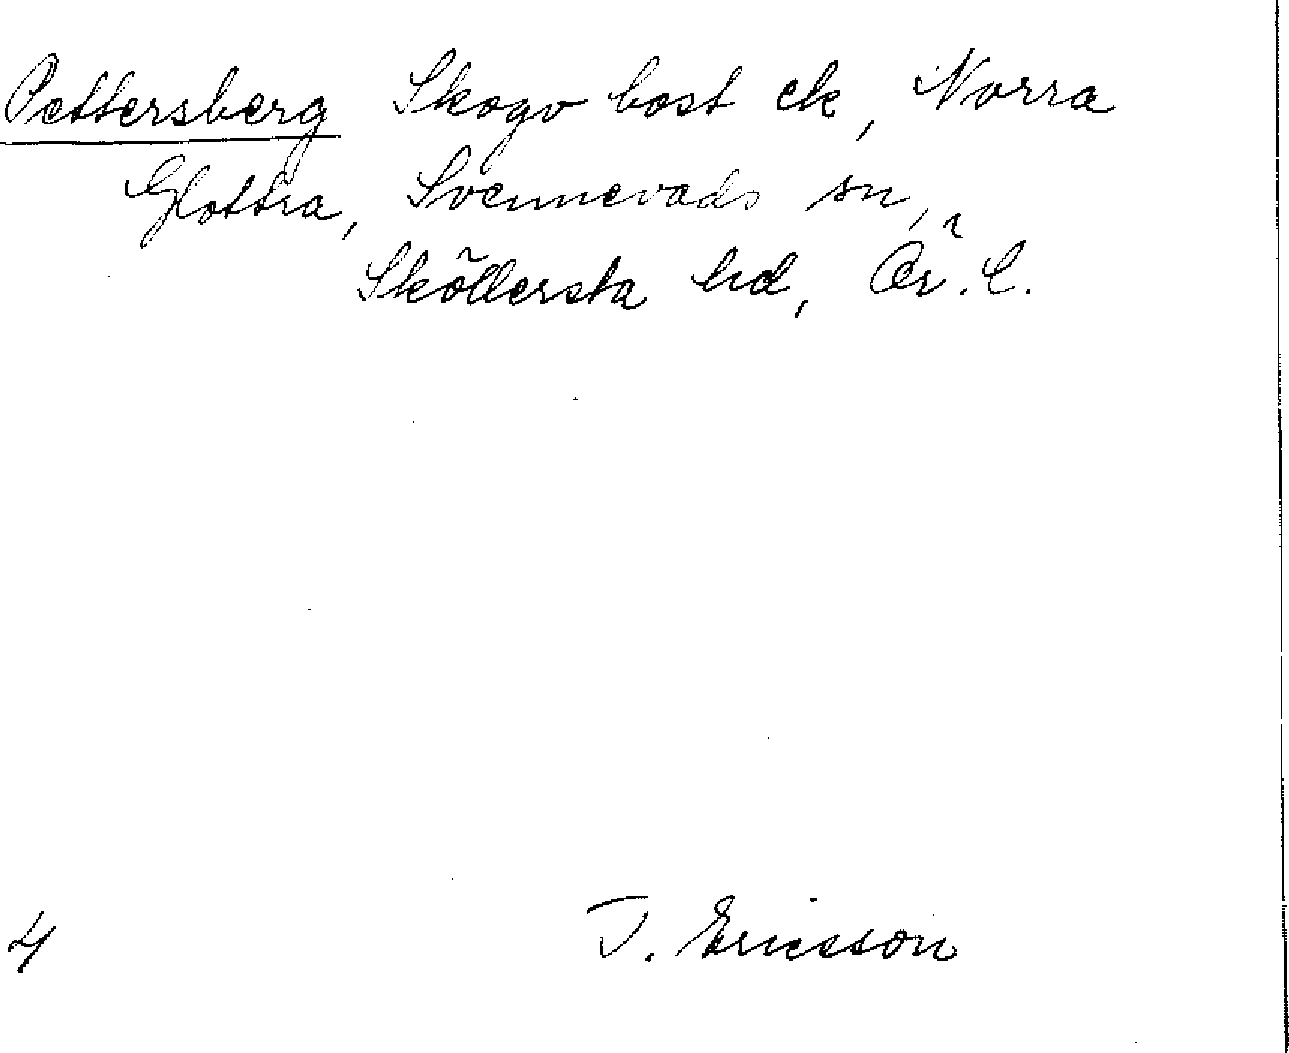 Pettersberg Skogv bost ek, Norra
Glottra, Svennevads sn,
Sköllersta hd, Ör. l.
4
J. Ericsson